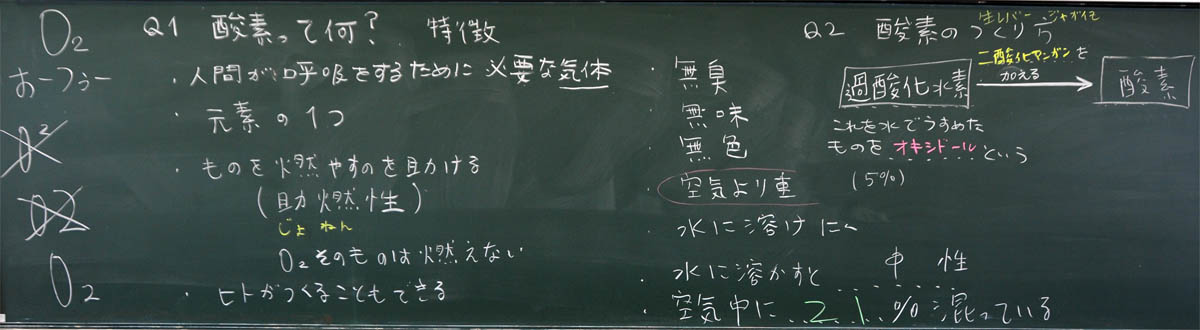 O₂
おーつぅー
O²
O2
O₂
Q1 酸素って何? 特徴
・人間が呼吸をするために必要な気体
・元素の1つ
・ものを燃やすのを助ける
(助燃性)
じょねん
O₂そのものは燃えない
・ヒトがつくることもできる
・無臭
無味
無色
・空気より重
・水に溶けに
・水に溶かすと 中性
・空気中に 21 %混っている
Q2 酸素のつくり方
生レバー ジャガイモ
過酸化水素
二酸化マンガンを
加える
酸素
これを水でうすめた
ものを オキシドール という
(5%)